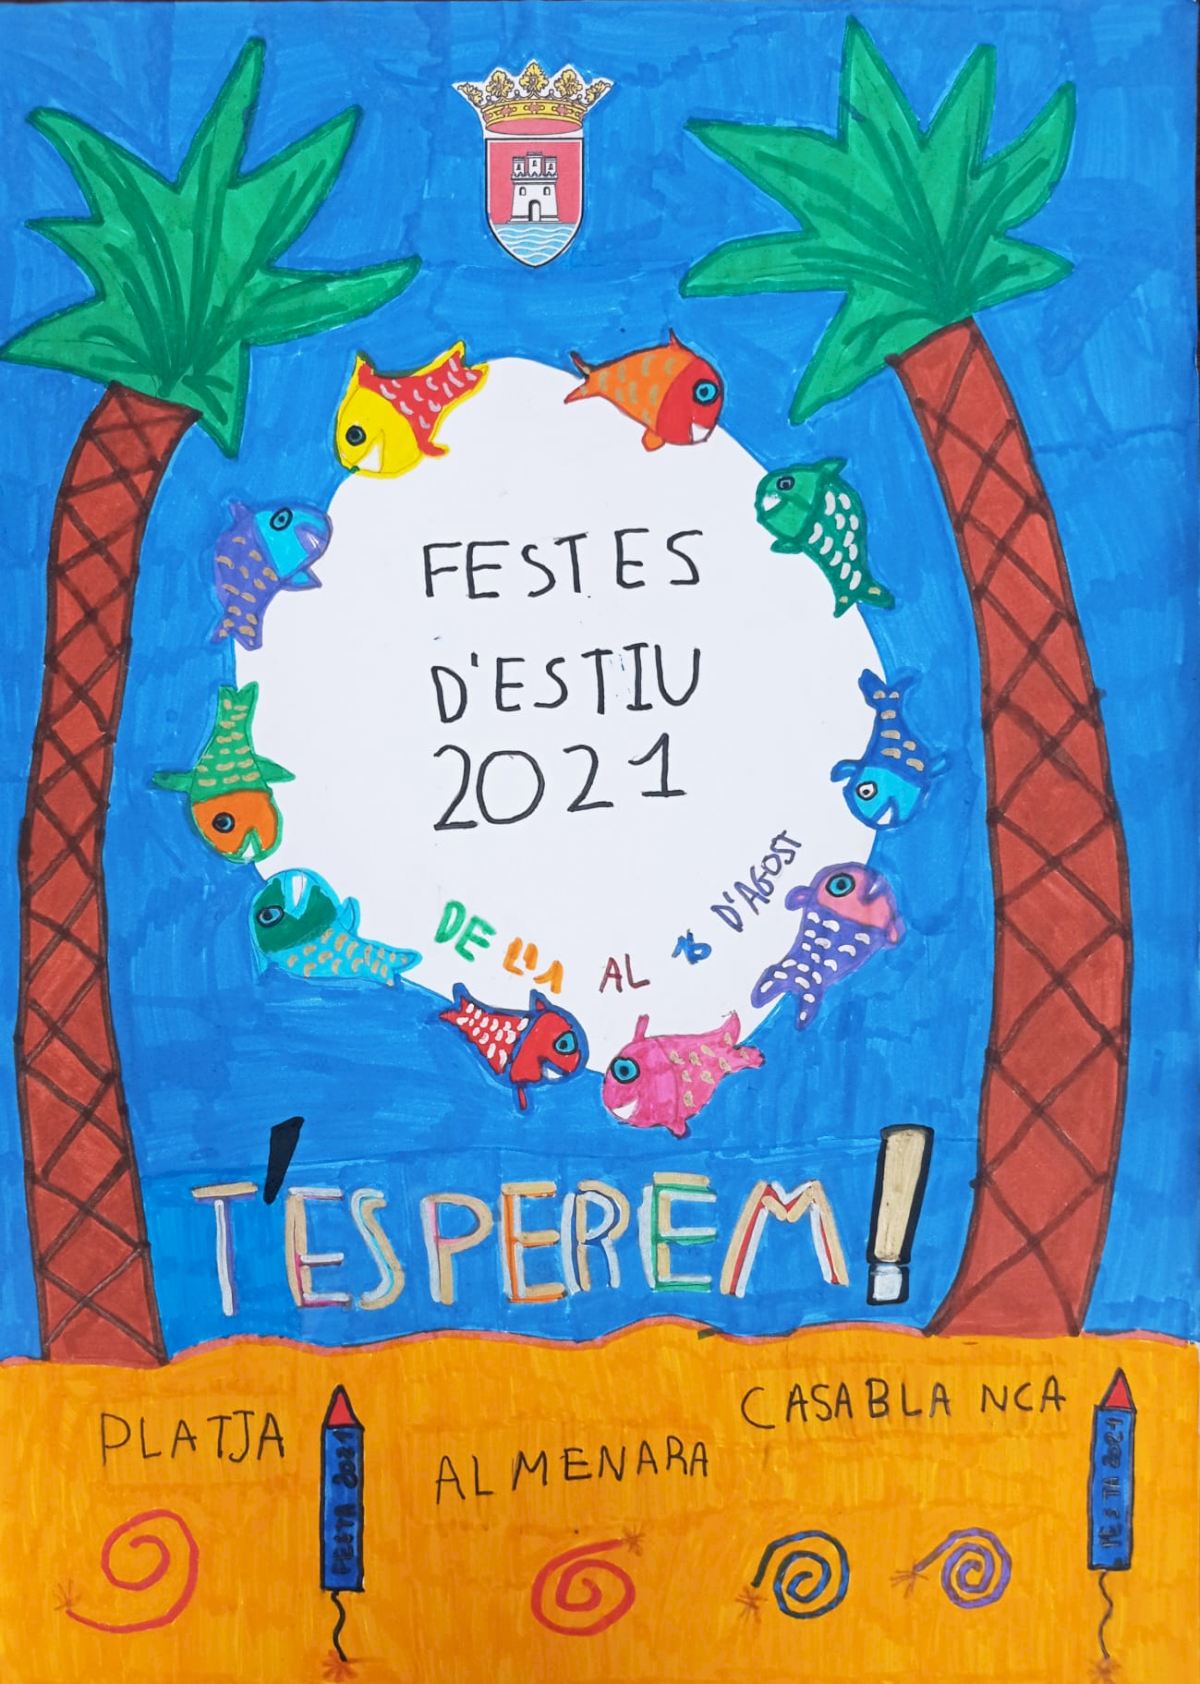 FESTES
D'ESTIU
2021
DE L'1 AL 15 D'AGOST
T'ESPEREM!
PLATJA
ALMENARA
CASABLANCA
FESTA 2021
FESTA 2021